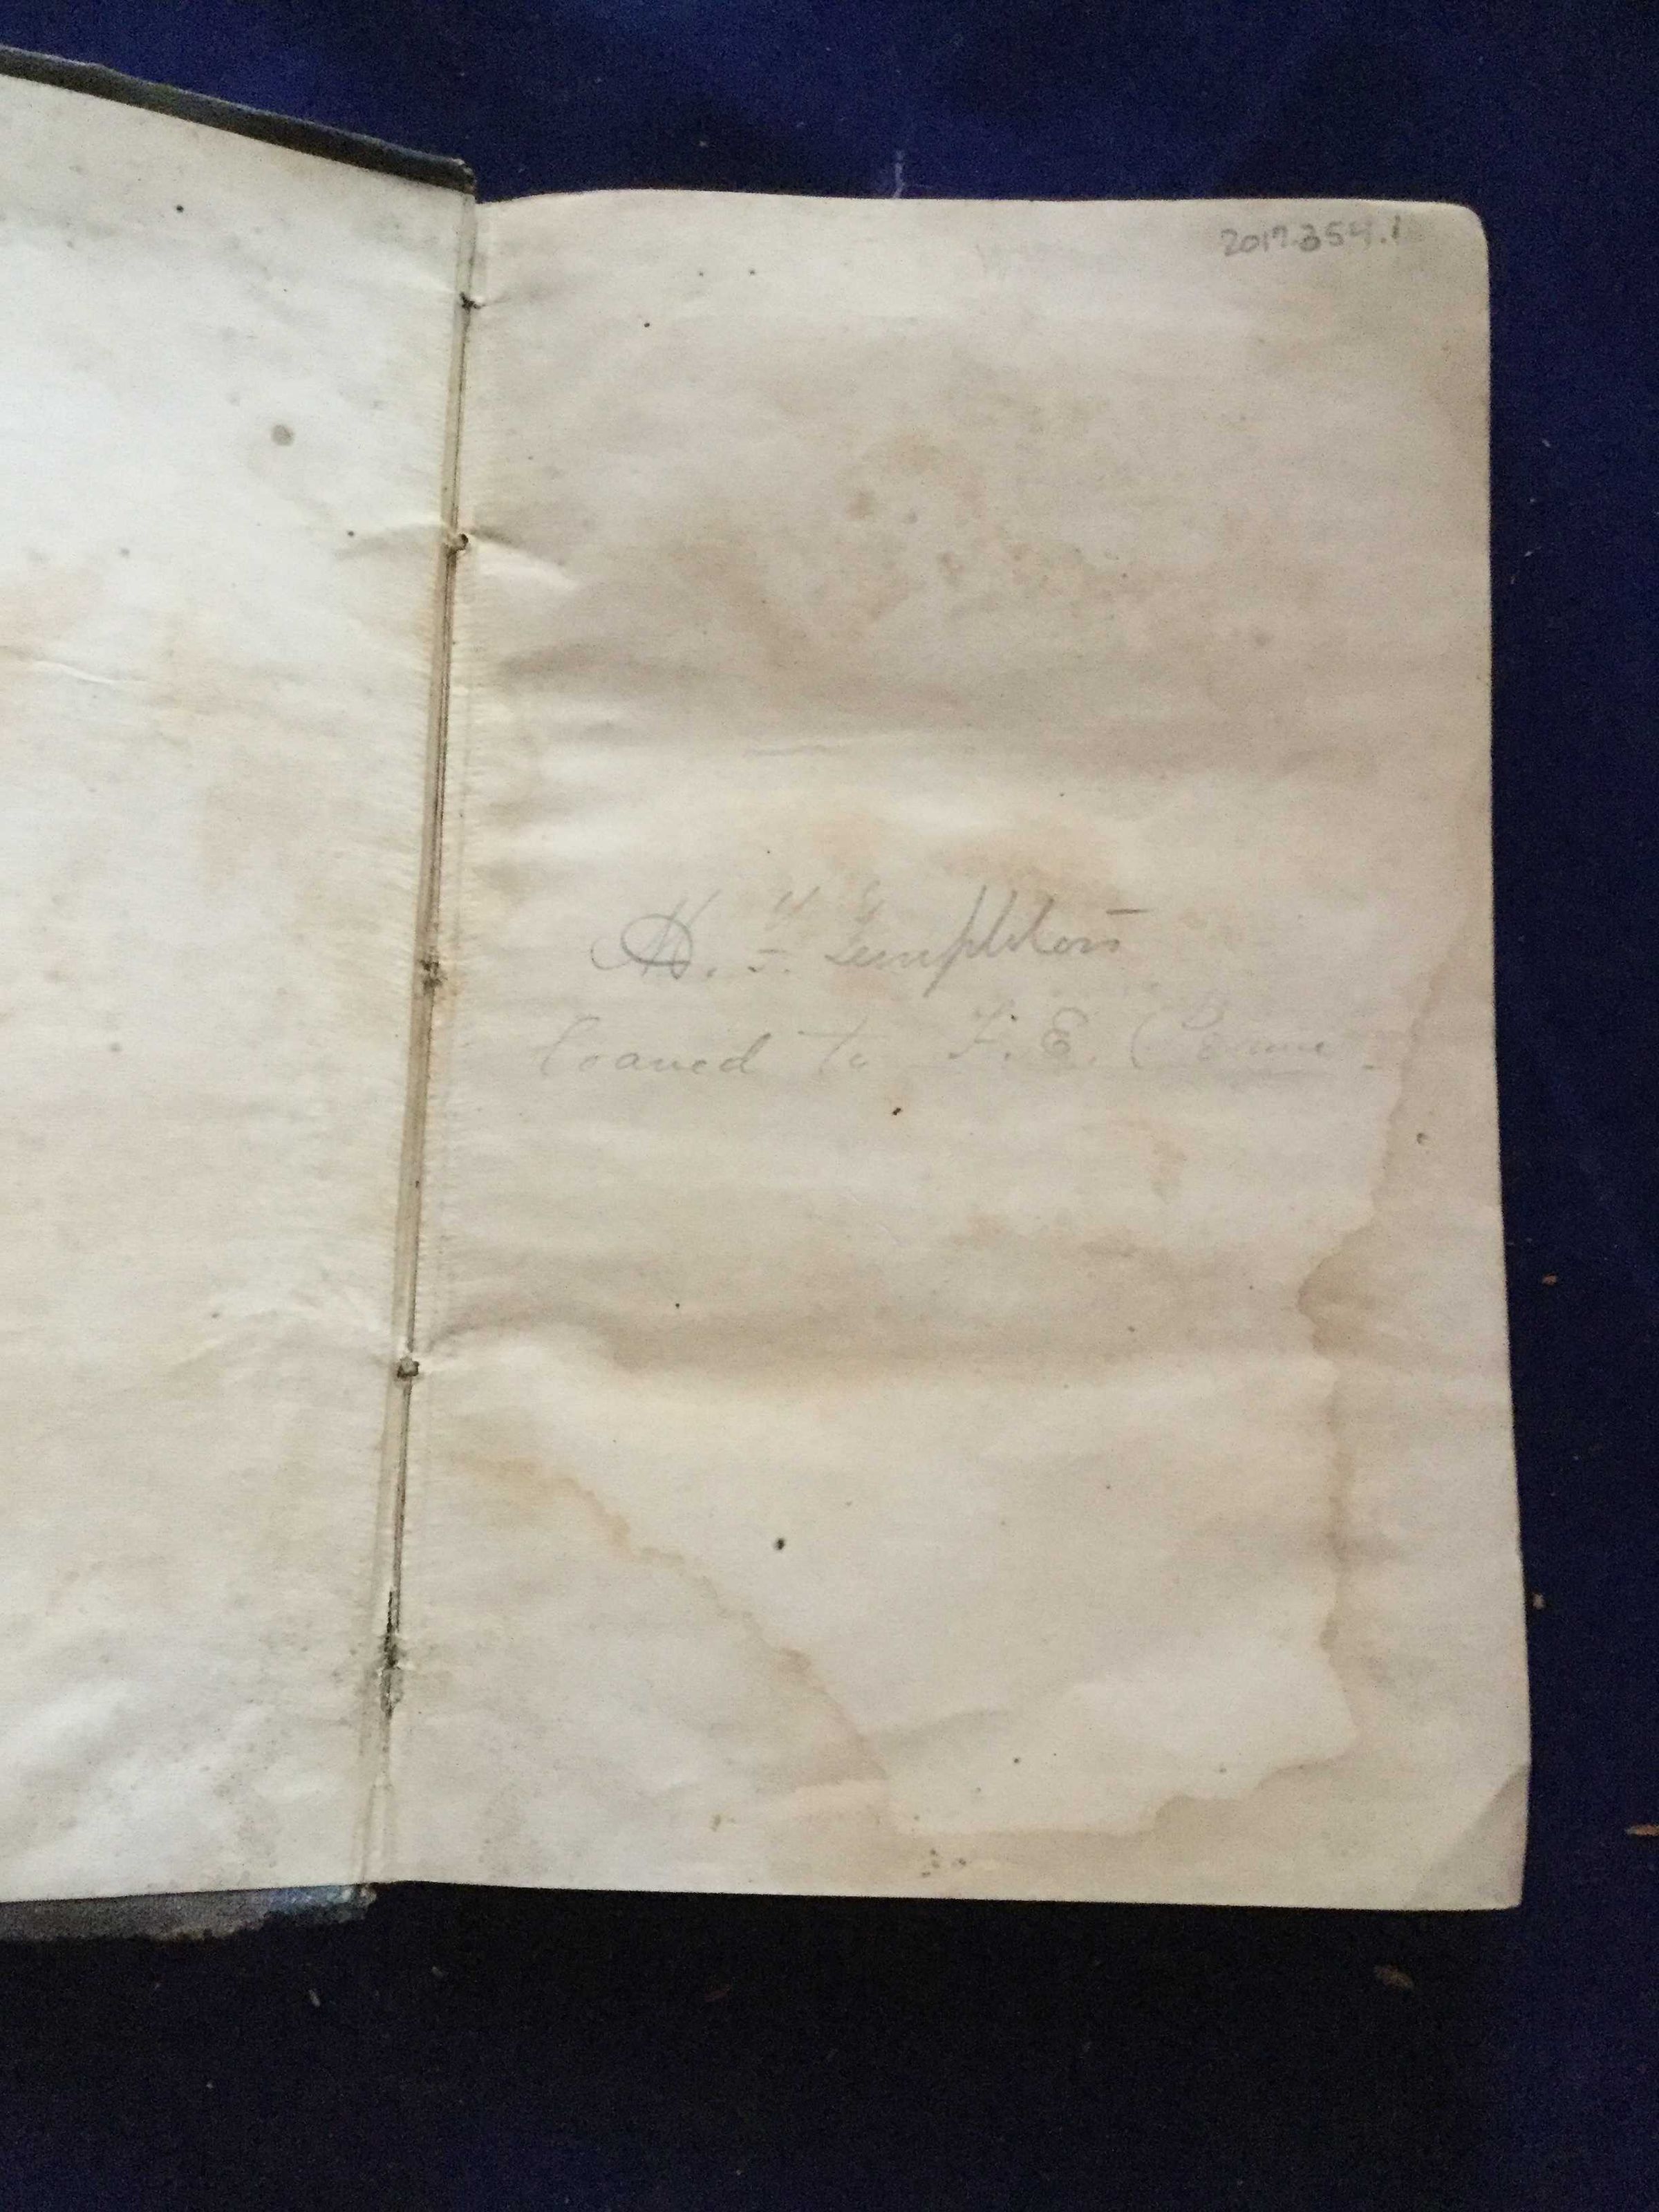 2017.354.1
H. F. Templeton
loaned to F. E.